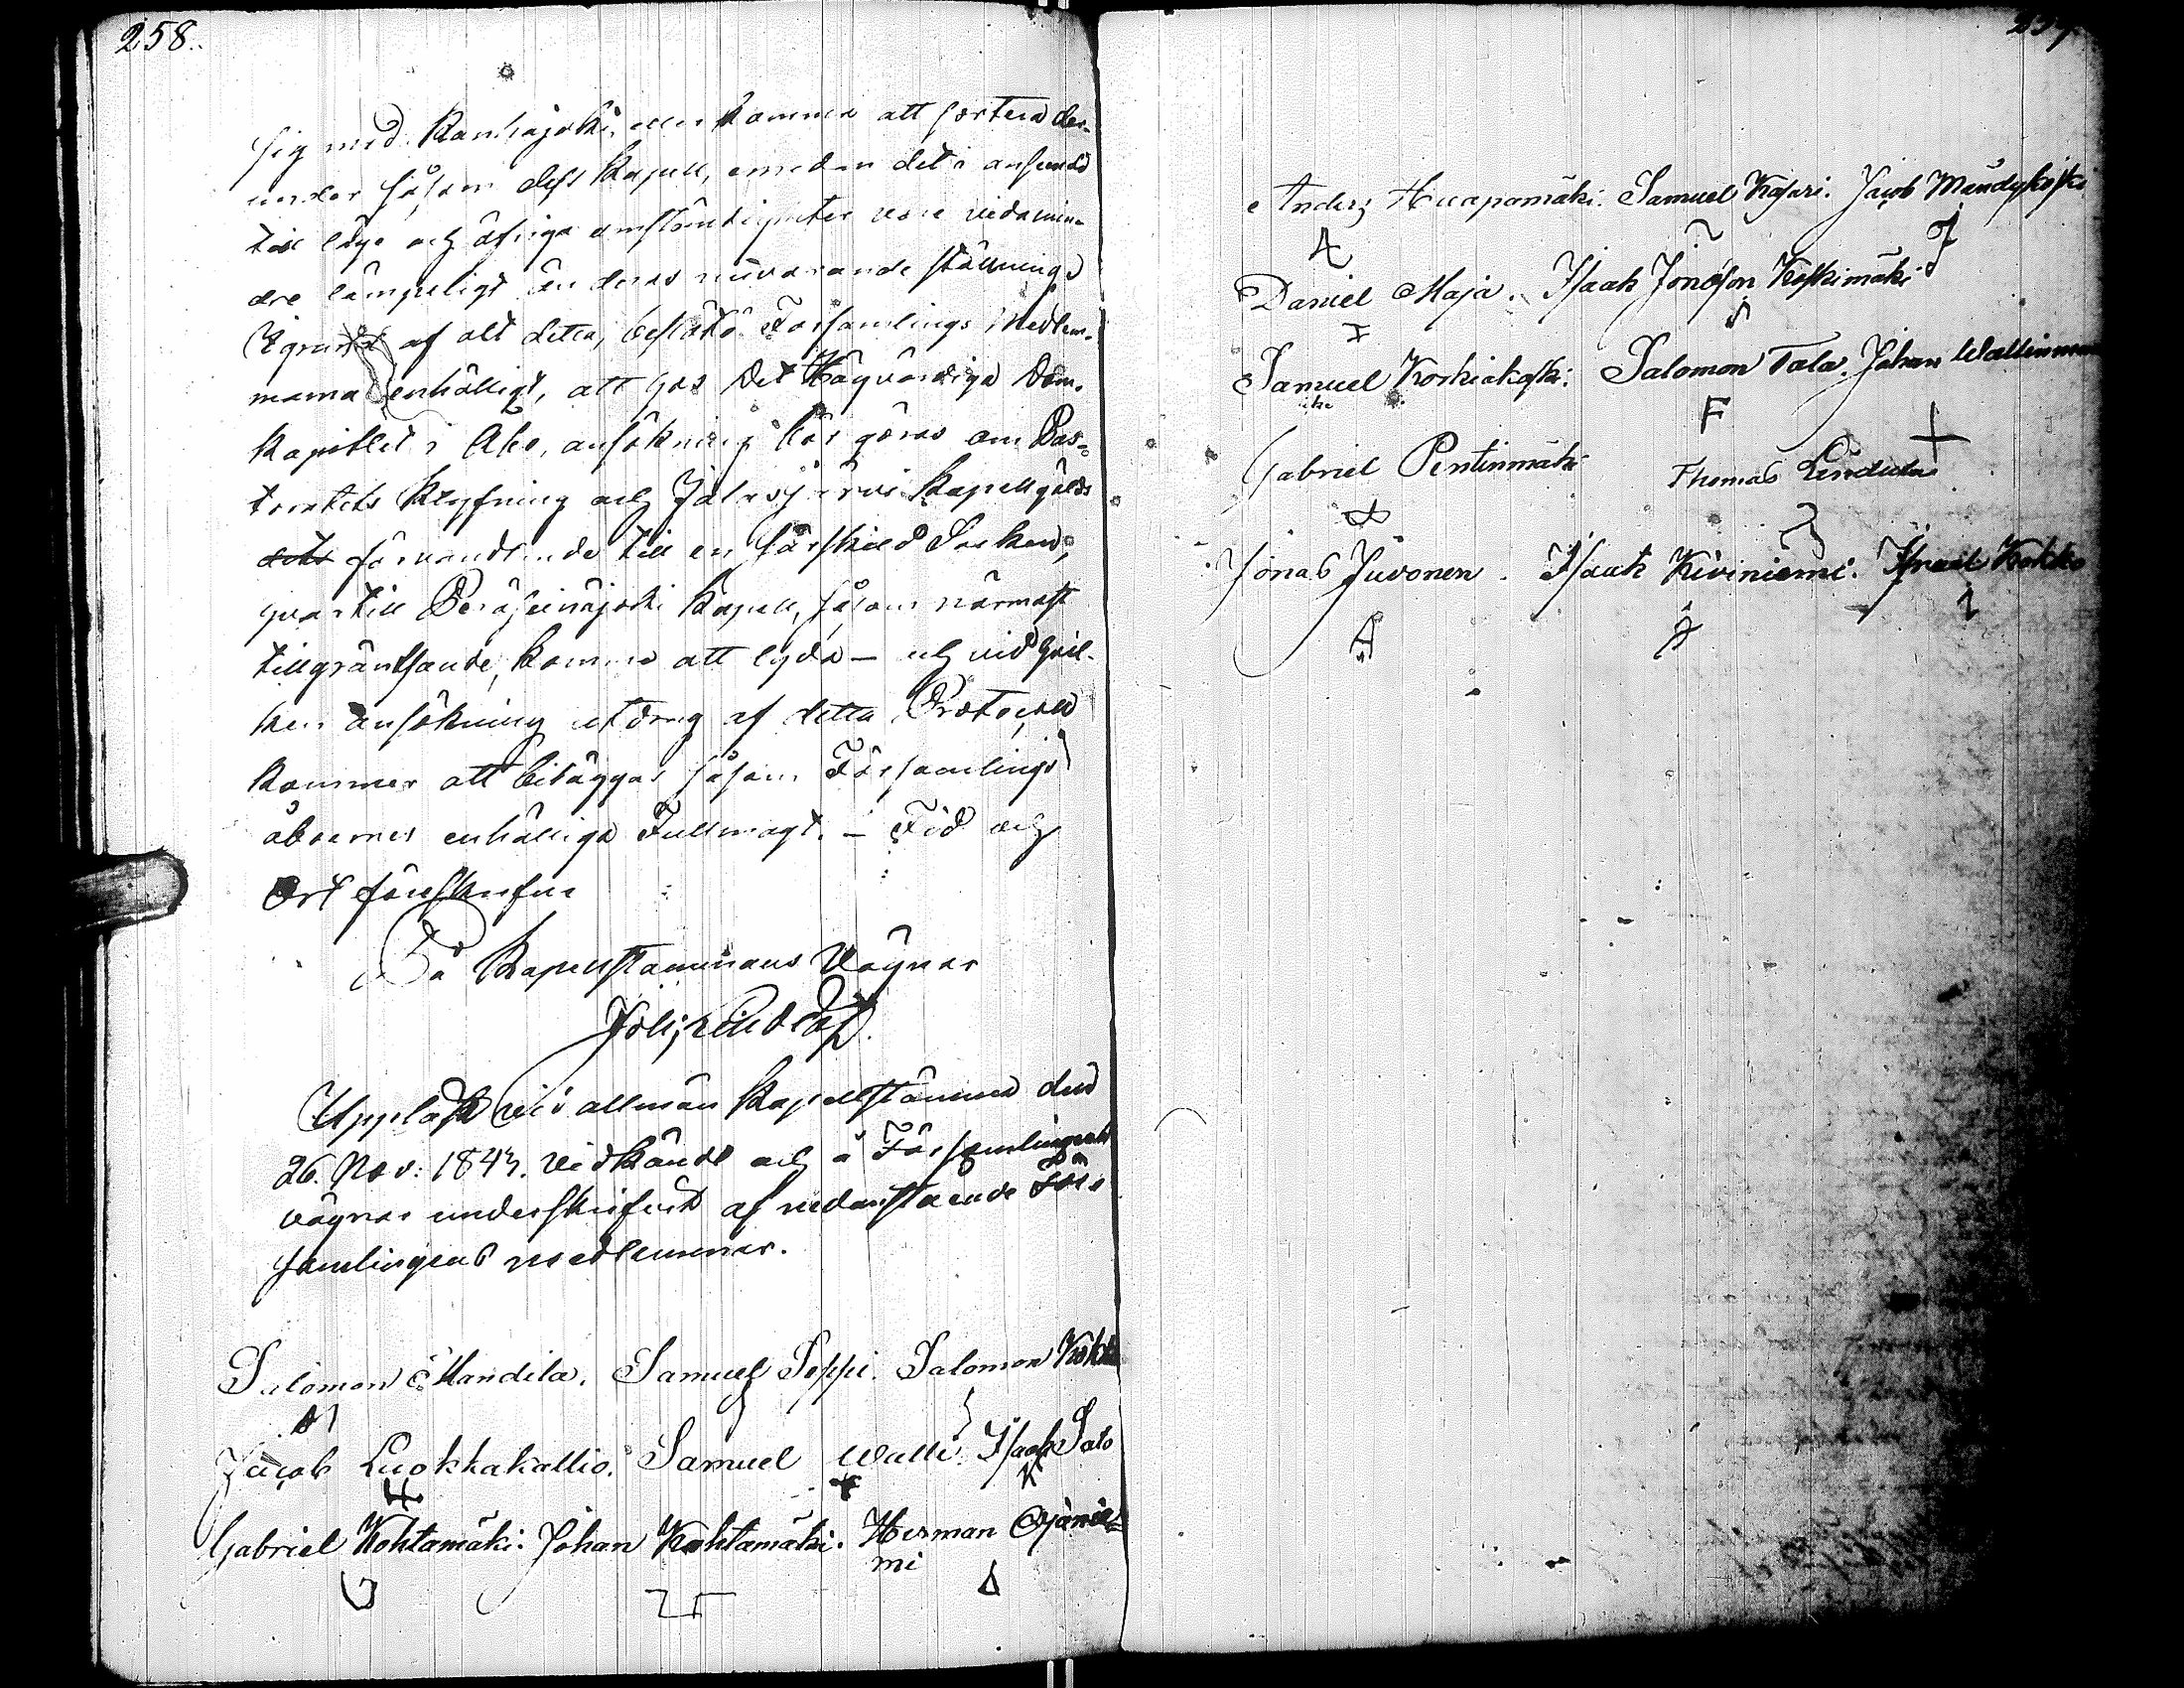 258.
sig med Kauhajoki, eller komma att sortera der-
under såsom dess Kapell, emedan det i anseende
till läge och öfriga omständigheter vore vida min-
dre lämpeligt än deras nuvarande ställning.
I grund af alt detta, beslöto Församlings Medlem-
marna enhälligt, att hos Det Högvördiga Dom-
kapitlet i Åbo, ansökning bör göras om Pas-
toratets klyfning och Jalasjärvi Kapellgälds
förvandlande till en särskild Socken,
hvartill Peräseinäjoki Kapell, såsom närmast
tillgräntsande, komme att lyda — och vid hvil-
ken ansökning utdrag af detta Protocoll
kommer att biläggas såsom Församlings
åboernes enhälliga Fullmagt. — Tid och
Ort förutskrifne
På Kapellstämmans Vägnar
Uppläst vid allmän Kapellstämma den
26. Nov: 1843. vidkändt och å Församlingens
vägnar underskrifvit af nedanstående För-
samlingens medlemmar.
Salomon Mandila. Samuel Seppi. Salomon Kokk
Jacob Luokkakallio. Samuel Walli. Isaak Salo
K
Gabriel Kohtamäki. Johan Kohtamäki. Herman Ojanie
mi
Anders Haapamäki. Samuel Kasari. Jacob Mandykoski
Daniel Maja. Isaak Jonasson Koskimäki
Samuel Koskiakoski. Salomon Tala. Johan Wallinmä
F
Gabriel Pentinmäki Thomas Lindula
Jonas Juvonen. Isaak Kiviniemi. Israel Kokko